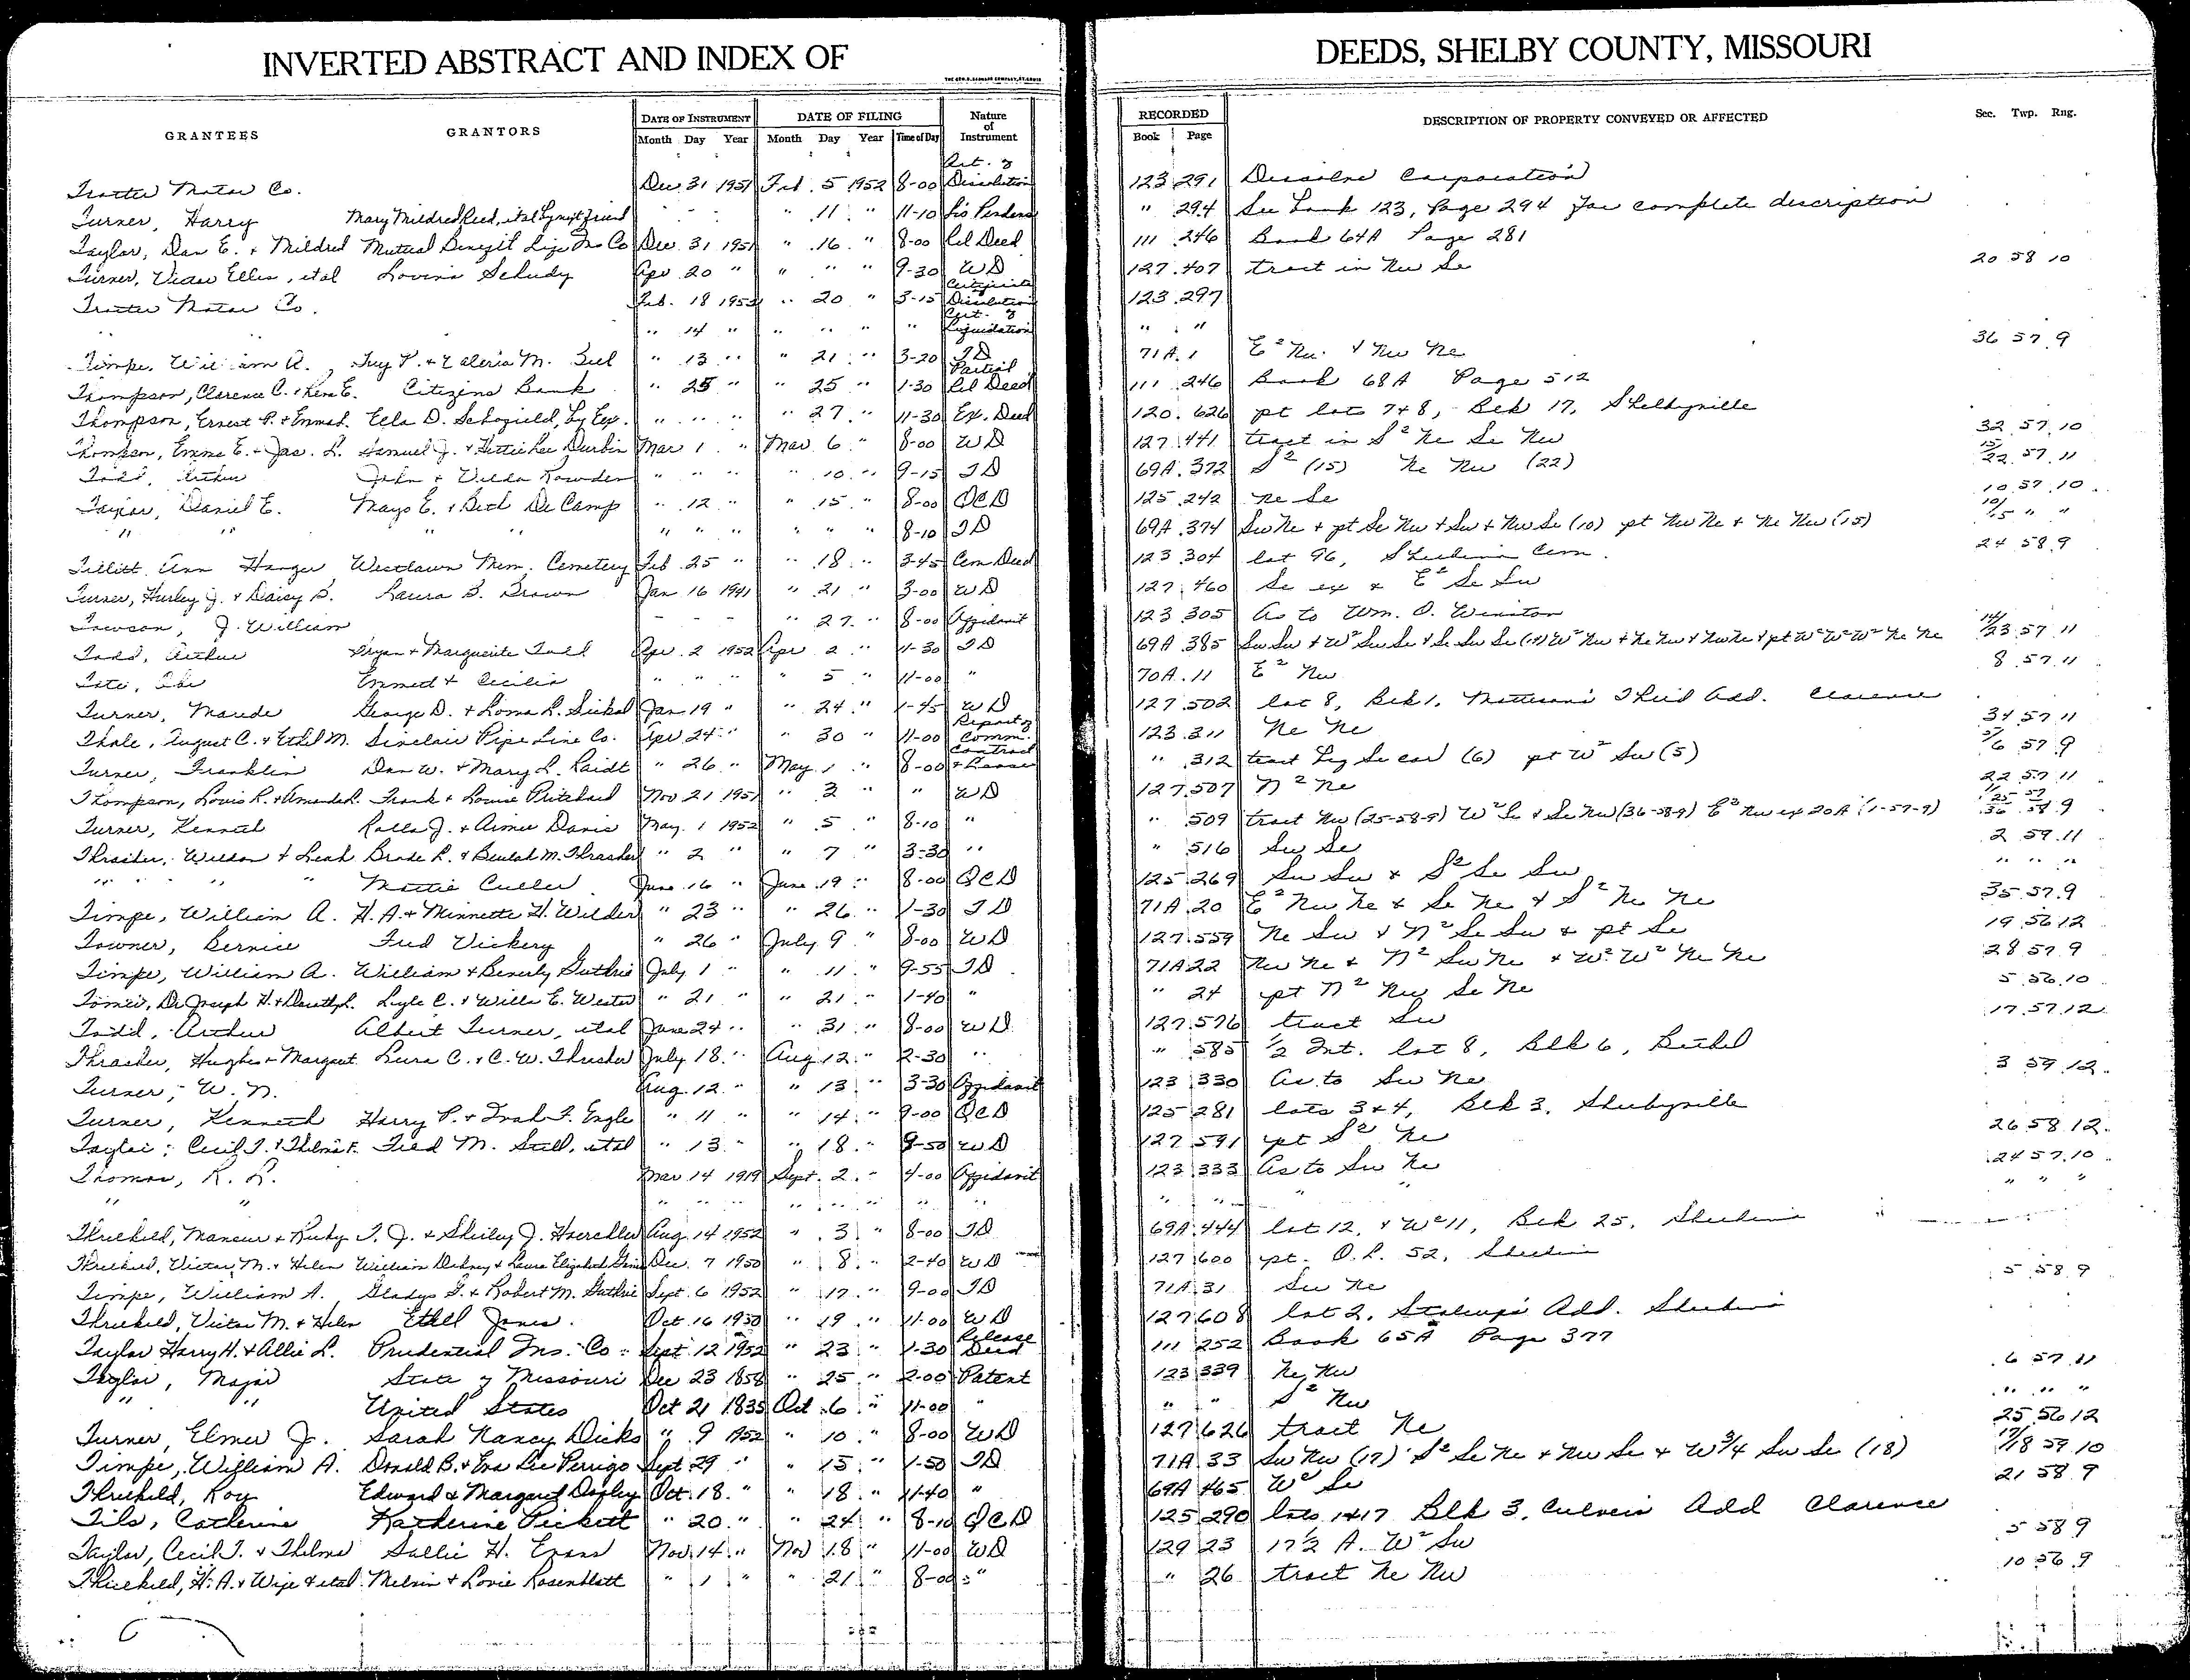 INVERTED ABSTRACT AND INDEX OF DEEDS, SHELBY COUNTY, MISSOURI
GRANTEES GRANTORS DATE OF INSTRUMENT DATE OF FILING Nature of Instrument RECORDED DESCRIPTION OF PROPERTY CONVEYED OR AFFECTED Sec. Twp. Rng.
Month Day Year Month Day Year Time of Day Book Page
Trotter Motor Co. Dec 31 1951 Feb. 5 1952 8-00 Art. of Dissolution 123 291 Dissolve Corporation
Turner, Harry Mary Mildred Reed, etal by next friend - - - " 11 " 11-10 Lis Pendens " 294 See Book 123, Page 294 for complete description
Taylor, Dan E. + Mildred Mutual Benefit Life Ins Co Dec. 31 1951 " 16 " 8-00 Rel Deed 111 246 Book 64A Page 281
Turner, Ellen, etal Lovina Schudy Apr 20 " " " " 9-30 WD 127 407 tract in Nw Se 20 58 10
Trotter Motor Co. Feb. 18 1952 " 20 " 3-15 Certificate Dissolution 123 297
" " 14 " " " " " Cert. of Liquidation " "
Timpe, William A. Guy P. + Valeria M. " 13 " " 21 " 3-20 TD 71A 1 E² Nw + Nw Ne 36 57 9
Thompson, Clarence C. + Rena E. Citizens Bank " 25 " " 25 " 1-30 Partial Rel Deed 111 246 Book 68A Page 512
Thompson, Ernest P. + Emma L. Ella D. Schofield, by Exr. " " " " 27 " 11-30 Ex. Deed 120 626 pt lots 7+8, Blk 17, Shelbyville
Thompson, Emma E. + Jas. L. Samuel J. + Hettie Lee Durbin Mar 1 " Mar 6 " 8-00 WD 127 441 tract in S² Ne Se Nw 32 57 10
Todd, Arthur John + Velda Rowden " " " " 10 " 9-15 TD 69A 372 S² (15) Ne Nw (22) 15/22 57 11
Taylor, Daniel E. Mayo E. + Beth De Camp " 12 " " 15 " 8-00 QCD 125 242 Ne Se 10 57 10
" " " " " " " " " " 8-10 TD 69A 374 Sw Ne + pt Se Nw + Sw + Nw Se (10) pt Nw Ne + Ne Nw (15) 10/15 " "
Tillitt Ann Hanger Westlawn Mem. Cemetery Feb 25 " " 18 " 3-45 Cem Deed 123 304 lot 96, Shelbina Cem. 24 58 9
Turner, Hurley J. + Daisy B. Laura B. Brown Jan 16 1941 " 21 " 3-00 WD 127 460 Se ex + E² Se Sw
Towson, J. William - - - " 27 " 8-00 Affidavit 123 305 As to Wm. O. Winston
Todd, Arthur Bryan + Marguerite Todd Apr. 2 1952 Apr 2 " 11-30 TD 69A 385 Sw Sw + W² Sw Se + Se Sw Se (14) W² Nw + Ne Nw + Nw Ne + pt W² W² W² Ne Ne 14/23 57 11
Tate, Abe Emmed + Cecilia " " " " 5 " 11-00 " 70A 11 E² Nw 8 57 11
Turner, Maude George D. + Loma L. Sickal Jan 19 " " 24 " 1-45 WD 127 502 lot 8, Blk 1, Third Add. Clarence
Thale, August C. + Ethel M. Sinclair Pipe Line Co. Apr 24 " " 30 " 11-00 Report of Comm. 123 311 Ne Ne 34 57 11
Turner, Franklin Dan W. + Mary L. Raidt " 26 " May 1 " 8-00 Contract + Lease " 312 tract beg Se cor (6) pt W² Sw (5) 5/6 57 9
Thompson, Louis R. + Amanda L. Frank + Louise Pritchard Nov 21 1951 " 3 " " WD 127 507 N² Ne 22 57 11
Turner, Kenneth Rolla J. + Aimee Davis May 1 1952 " 5 " 8-10 " " 509 tract Nw (25-58-9) W² Se + Se Nw (36-58-9) E² Nw ex 20A (1-57-9)
Thrasher, Weldon + Leah Brade L. + Beulah M. Thrasher " 2 " " 7 " 3-30 " " 516 Sw Se 2 59 11
" " " Mattie Culler June 16 " June 19 " 8-00 QCD 125 269 Sw Sw + S² Se Sw " " "
Timpe, William A. H. A. + Minnette H. Wilder " 23 " " 26 " 1-30 TD 71A 20 E² Nw Ne + Se Ne + S² Ne Ne 35 57 9
Towner, Bernice Fred Vickery " 26 " July 9 " 8-00 WD 127 559 Ne Sw + N² Se Sw + pt Se 19 56 12
Timpe, William A. William + Beverly Guthrie July 1 " " 11 " 9-55 TD 71A 22 Nw Ne + N² Sw Ne + W² W² Ne Ne 28 57 9
Dr. Joseph H. + Dorothy L. Lyle C. + Willa E. Wester " 21 " " 21 " 1-40 " " 24 pt N² Nw Se Ne 5 56 10
Todd, Arthur Albert Turner, etal June 24 " " 31 " 8-00 WD 127 576 tract Sw 17 57 12
Thrasher, Hughes + Margaret Lura C. + C. W. Thrasher July 18 " Aug 12 " 2-30 " " 585 ½ Int. lot 8, Blk 6, Bethel
Turner, W. N. Aug. 12 " " 13 " 3-30 Affidavit 123 330 As to Sw Ne 3 59 12
Turner, Kenneth Harry P. + Inah F. Engle " 11 " " 14 " 9-00 QCD 125 281 lots 3+4, Blk 3, Shelbyville
Taylor, Cecil T. + Thelma F. Fred M. Still, etal " 13 " " 18 " 9-50 WD 127 591 pt S² Ne 26 58 12
Thomas, R. L. Mar 14 1919 Sept. 2 " 4-00 Affidavit 123 333 As to Sw Ne 24 57 10
" " " " " " " " " " " " " " " " "
Threlkeld, Manuer + Ruby T. J. + Shirley J. Hoerchler Aug 14 1952 " 3 " 8-00 TD 69A 444 lot 12, + W² 11, Blk 25, Shelbina
Threlkeld, Victor M. + Helen William Dabney + Laura Elizabeth Dec. 7 1950 " 8 " 2-40 WD 127 600 pt. O.L. 52, Shelbina
Timpe, William A. Gladys F. + Robert M. Guthrie Sept. 6 1952 " 17 " 9-00 TD 71A 31 Sw Ne 5 58 9
Threlkeld, Victor M. + Helen Ethel Jones Oct. 16 1950 " 19 " 11-00 WD 127 608 lot 2, Stalcup's Add. Shelbina
Taylor Harry H. + Allie L. Prudential Ins. Co. Sept 12 1952 " 23 " 1-30 Release Deed 111 252 Book 65A Page 377
Taylor, Major State of Missouri Dec 23 1858 " 25 " 2-00 Patent 123 339 Ne Nw 6 57 11
" " United States Oct 21 1835 Oct 6 " 11-00 " " " S² Nw " " "
Turner, Elmer J. Sarah Nancy Dicks " 9 1952 " 10 " 8-00 WD 127 626 tract Ne 25 56 12
Timpe, William A. Donald B. + Eva Lee Perrigo Sept 29 " " 15 " 1-50 TD 71A 33 Sw Nw (17) S² Se Ne + Nw Se + W¾ Sw Se (18) 17/18 59 10
Threlkeld, Roy Edward + Margaret Dooley Oct. 18 " " 18 " 11-40 " 69A 465 W² Se 21 58 9
Tils, Catherine Katherine Pickett " 20 " " 24 " 8-10 QCD 125 290 lots 1+17 Blk 3, Culvers Add Clarence
Taylor, Cecil T. + Thelma Sallie H. Evans Nov 14 " Nov 18 " 11-00 WD 129 23 17½ A. W² Sw 5 58 9
Threlkeld, H. A. + Wife + etal Melvin + Lovie Rosenblatt " 1 " " 21 " 8-00 " " 26 tract Ne Nw 10 56 9